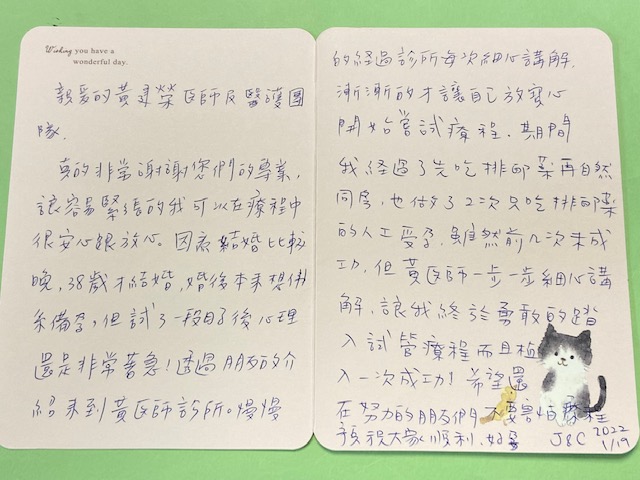 Wishing you have a
wonderful day.
親爱的黃建榮医師及醫護團
隊.
真的非常謝謝您們的專業,
讓容易緊張的我可以在療程中
很安心跟放心。因為結婚比較
晚,38歲才結婚,婚後本來想佛
系備孕,但試了一段日子後心理
還是非常著急!透過朋友的介
紹來到黃医師診所。慢慢
的經過診所每次細心講解.
漸漸的才讓自己放寬心
開始嘗試療程.期間
我經過了先吃排卵藥再自然
同房,也做了2次只吃排卵藥
的人工受孕.雖然前几次未成
功.但黃医師一步一步細心講
解.讓我終於勇敢的踏
入試管療程而且植
入一次成功!希望還
在努力的朋友們不要害怕療程
預祝大家順利.好孕
J&C 2022
1/19